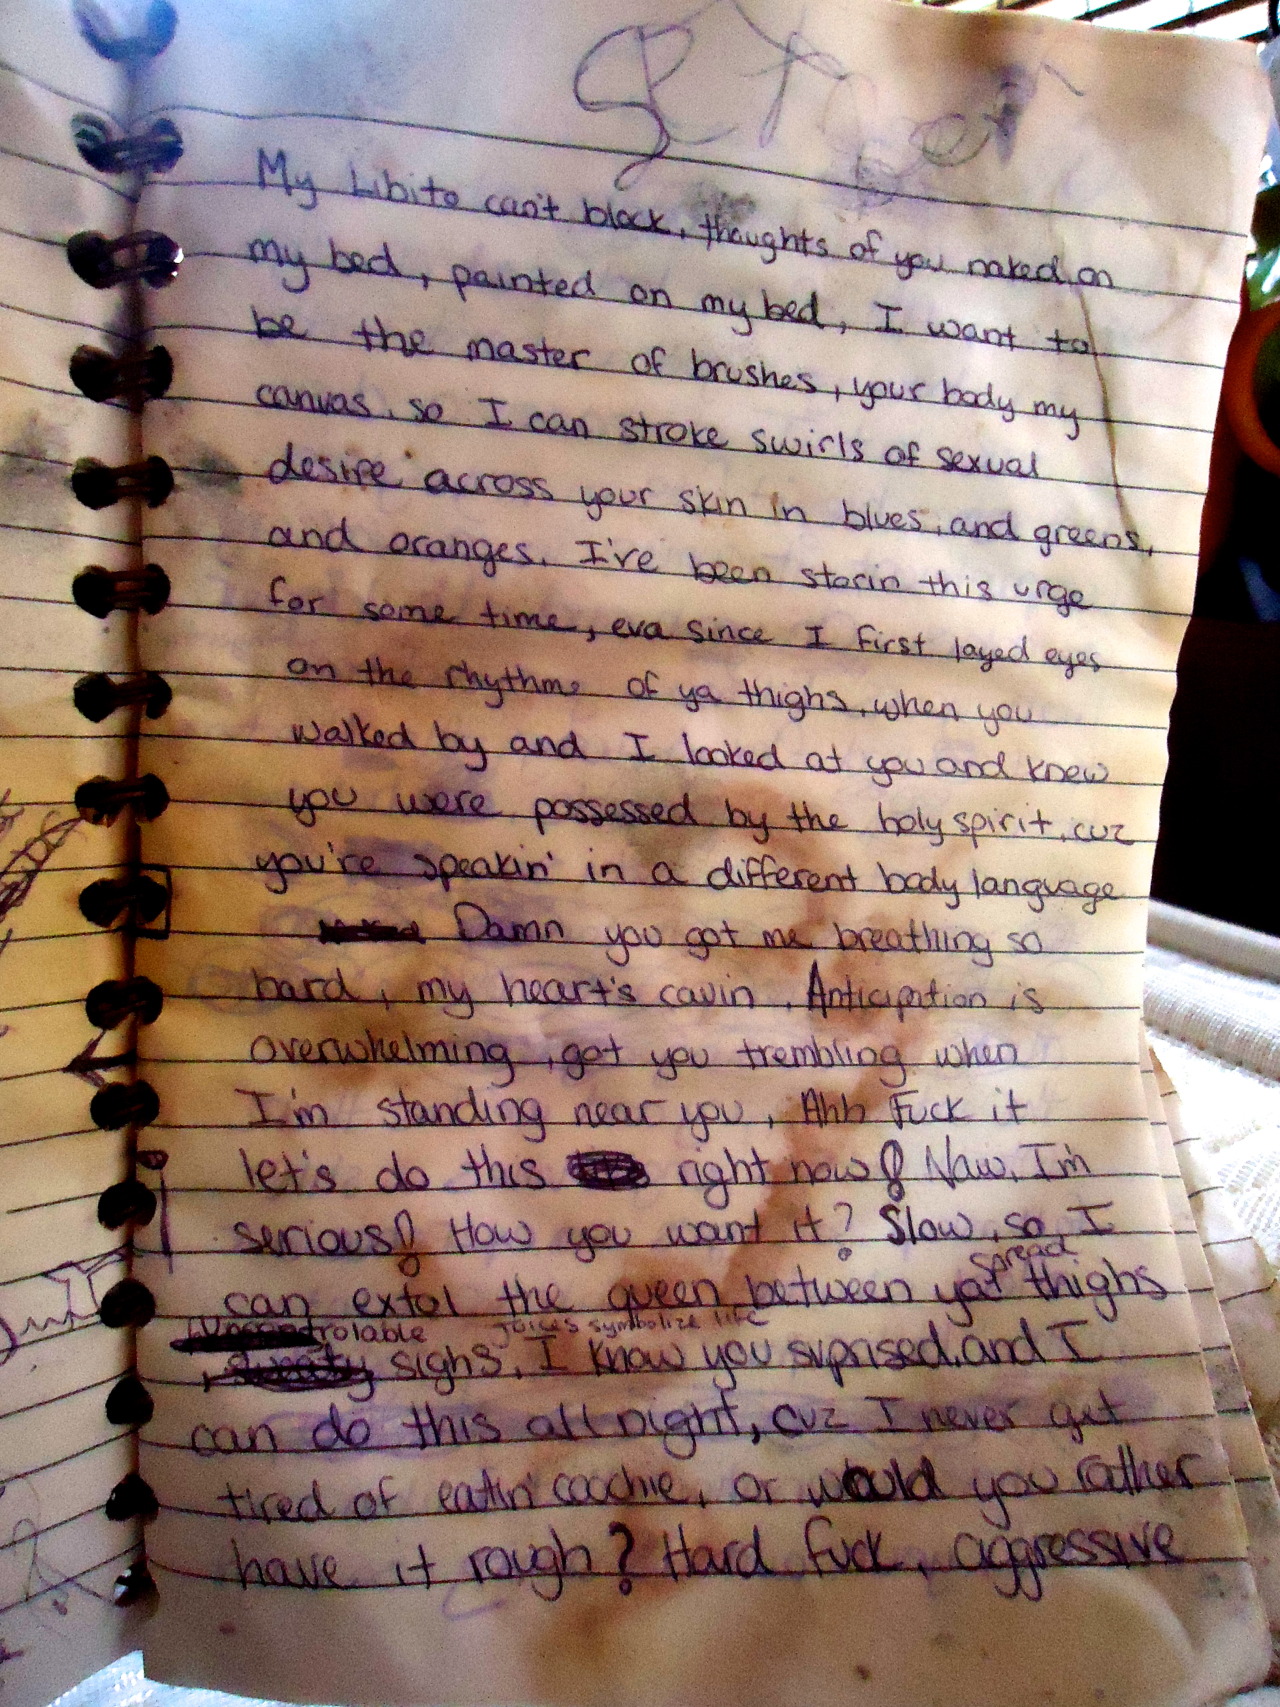 My Libito can't block, thoughts of you naked on
my bed, painted on my bed, I want to
be the master of brushes, your body my
canvas, so I can stroke swirls of sexual
desire across your skin in blues, and greens,
and oranges. I've been storin this urge
for some time, eva since I first layed eyes
on the rhythms of ya thighs, when you
walked by and I looked at you and knew
you were possessed by the holy spirit, cuz
you're speakin' in a different body language
Damn you got me breathing so
hard, my heart's cavin. Anticipation is
overwhelming, got you trembling when
I'm standing near you, Ahh Fuck it
let's do this right now! Naw, I'm
serious! How you want it? Slow, so I
spread
can extol the queen between yat thighs
juices symbolize life
sighs, I know you suprised, and I
can do this all night, cuz I never get
tired of eatin' coochie, or would you rather
have it rough? Hard fuck, aggressive